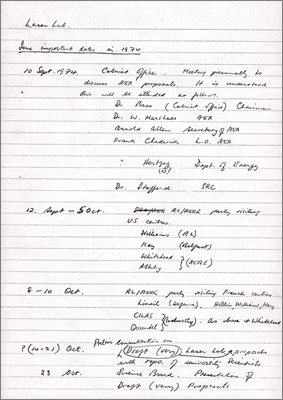 Laser Lab.
Some important dates in 1974
10 Sept. 1974. Cabinet Office. Meeting presumably to
discuss AEA proposals. It is understood
this will be attended as follows.
Dr. Press (Cabinet Office) Chairman
Dr. W. Marshall AEA
Arnold Allen Secretary of AEA
Frank Chadwick L.O. AEA
" Herzig Dept. of Energy
Dr. Stafford SRC
12. Sept - 5 Oct. RL/AERE party visiting
US centres.
Williams (RL)
Key (Belfast)
Whitehead
Ashby } (AERE)
8 - 10 Oct. RL/AERE party visiting French centres
Limeil (Defence).
CILAS
Quantel } (Industry). As above + Whitehead
Prelim consultation on
? (14-21) Oct. (Draft (very)) Laser Lab proposals
with reps. of university scientists
23 Oct. Science Board. Presentation of
Draft (very) Proposals